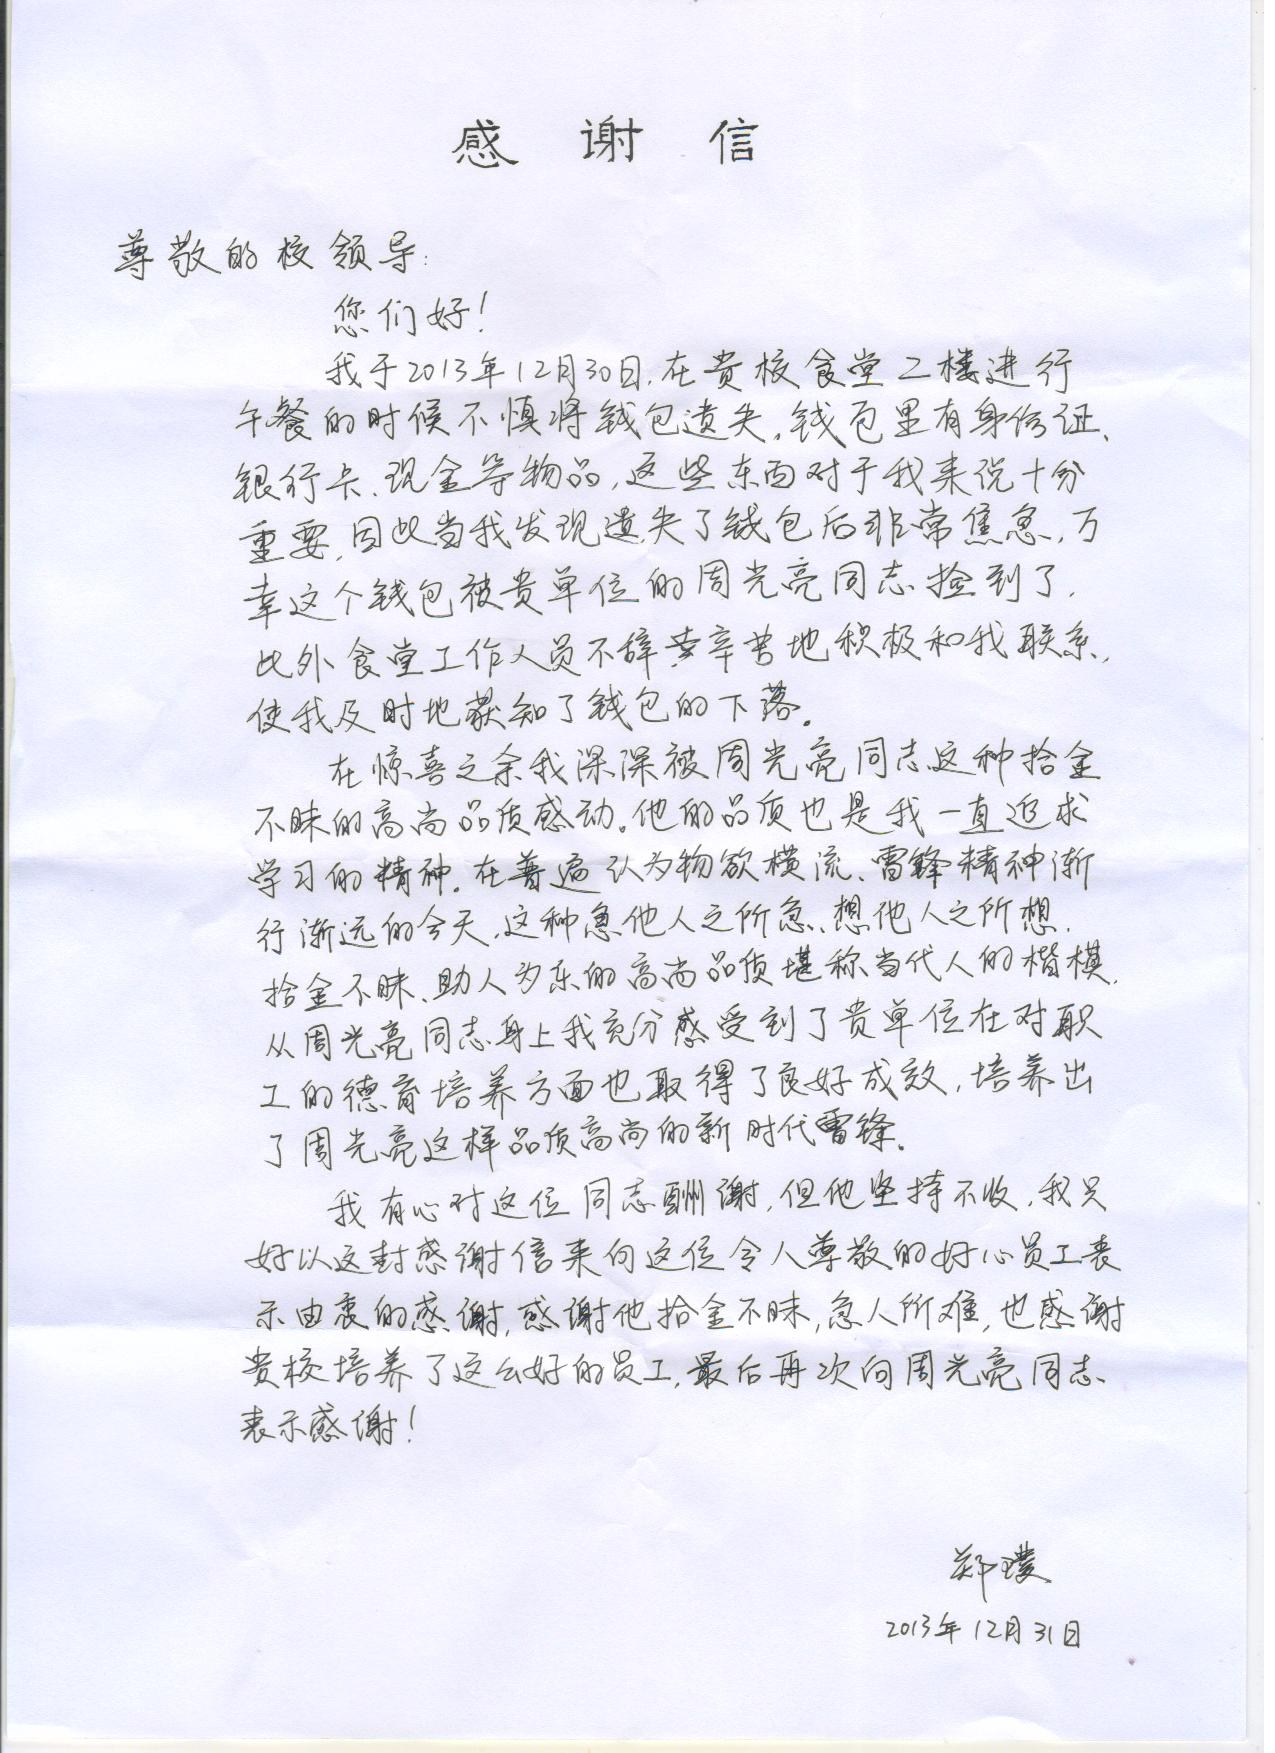 感谢信
尊敬的校领导:
您们好!
我于2013年12月30日,在贵校食堂二楼进行
午餐的时候不慎将钱包遗失,钱包里有身份证、
银行卡、现金等物品,这些东西对于我来说十分
重要,因此当我发现遗失了钱包后非常焦急,万
幸这个钱包被贵单位的周光亮同志捡到了,
此外食堂工作人员不辞辛苦地积极和我联系,
使我及时地获知了钱包的下落。
在惊喜之余我深深被周光亮同志这种拾金
不昧的高尚品质感动。他的品质也是我一直追求
学习的精神。在普遍认为物欲横流、雷锋精神渐
行渐远的今天,这种急他人之所急、想他人之所想,
拾金不昧、助人为乐的高尚品质堪称当代人的楷模,
从周光亮同志身上我充分感受到了贵单位在对职
工的德育培养方面也取得了良好成效,培养出
了周光亮这样品质高尚的新时代雷锋。
我有心对这位同志酬谢,但他坚持不收,我只
好以这封感谢信来向这位令人尊敬的好心员工表
示由衷的感谢,感谢他拾金不昧,急人所难,也感谢
贵校培养了这么好的员工,最后再次向周光亮同志
表示感谢!
郑璞
2013年12月31日